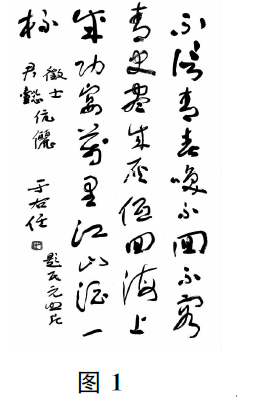 不信青春喚不回不容
青史盡成灰低回海上
成功宴萬里江山酒一
杯
徵士
君懿伉儷
于右任
題民元照片
图 1